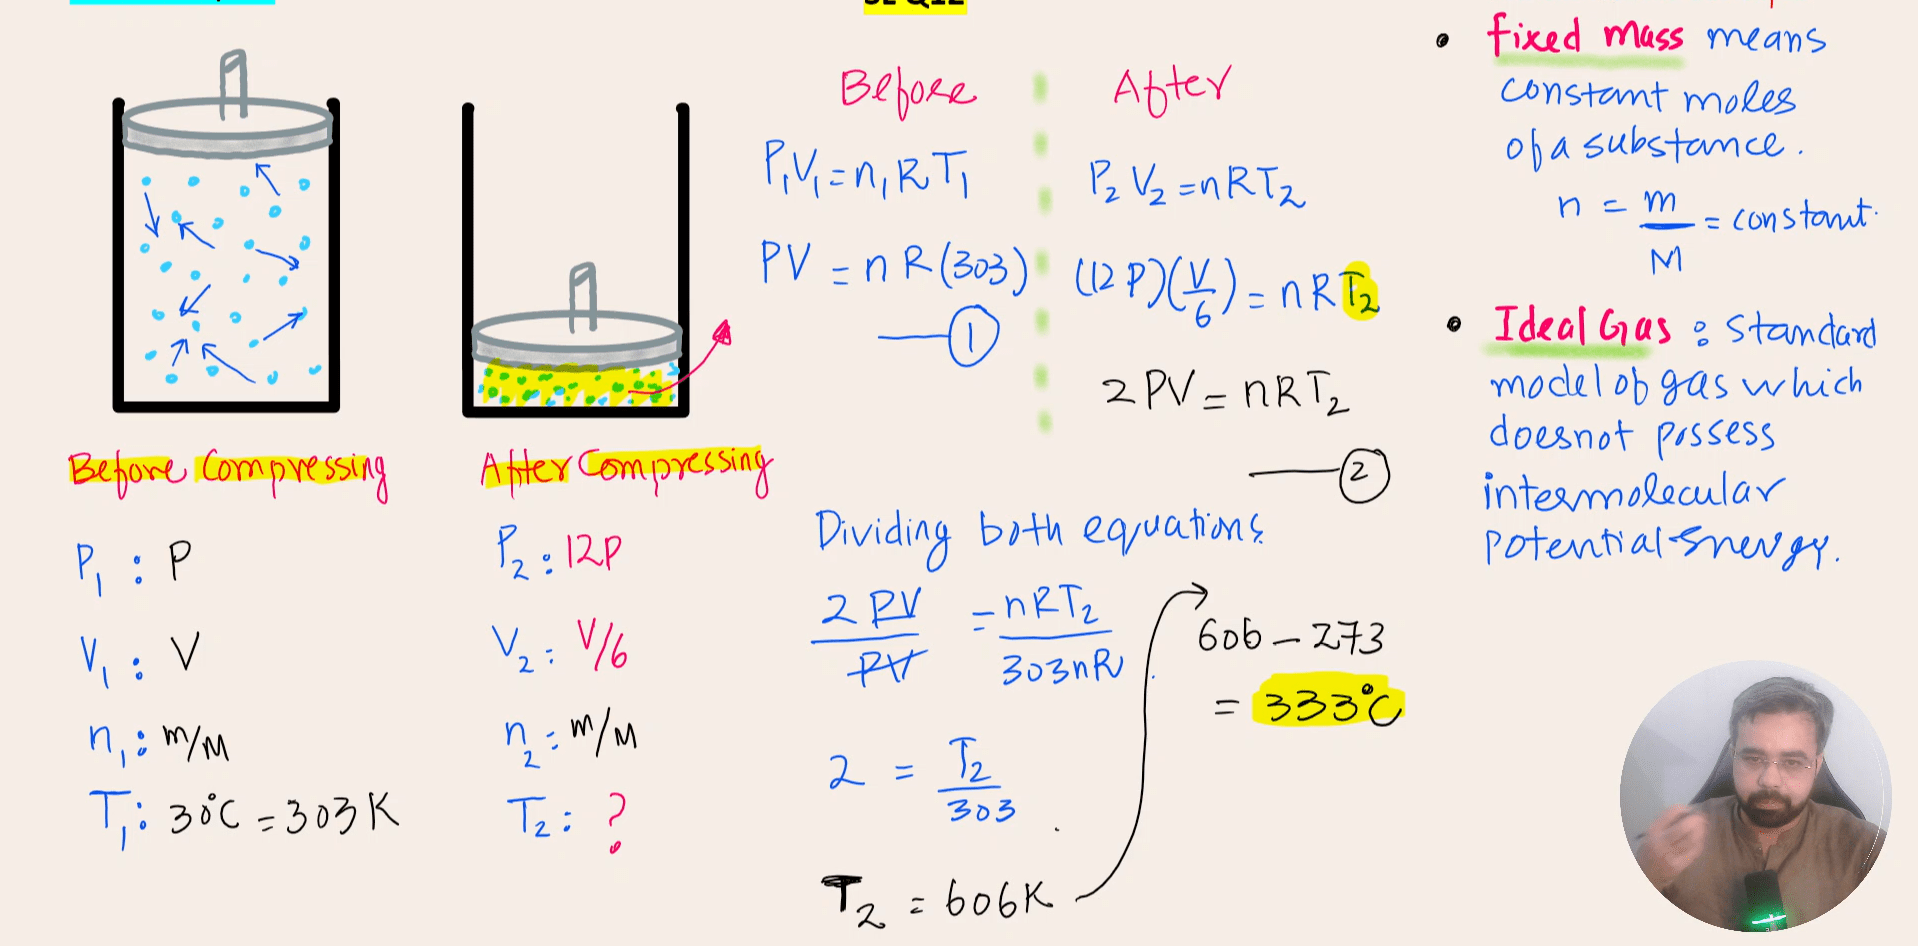 Before Compressing
P₁ : P
V₁ : V
n₁ : m/M
T₁ : 30°C = 303K
After Compressing
P₂ : 12P
V₂ : V/6
n₂ = m/M
T₂ : ?
Before
P₁V₁ = n₁RT₁
PV = nR(303)
1
After
P₂V₂ = nRT₂
(12P)(V/6) = nRT₂
2PV = nRT₂
2
Dividing both equations
2PV/PV = nRT₂/303nR
2 = T₂/303
T₂ = 606K
606 - 273
= 333°C
• fixed mass means
constant moles
of a substance.
n = m/M = constant.
• Ideal Gas : Standard
model of gas which
doesnot possess
intermolecular
potential Energy.